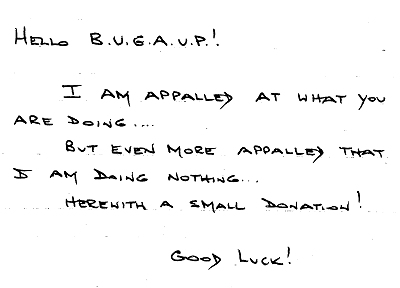 HELLO B.U.G.A.U.P.!
I AM APPALLED AT WHAT YOU
ARE DOING....
BUT EVEN MORE APPALLED THAT
I AM DOING NOTHING...
HEREWITH A SMALL DONATION!
GOOD LUCK!